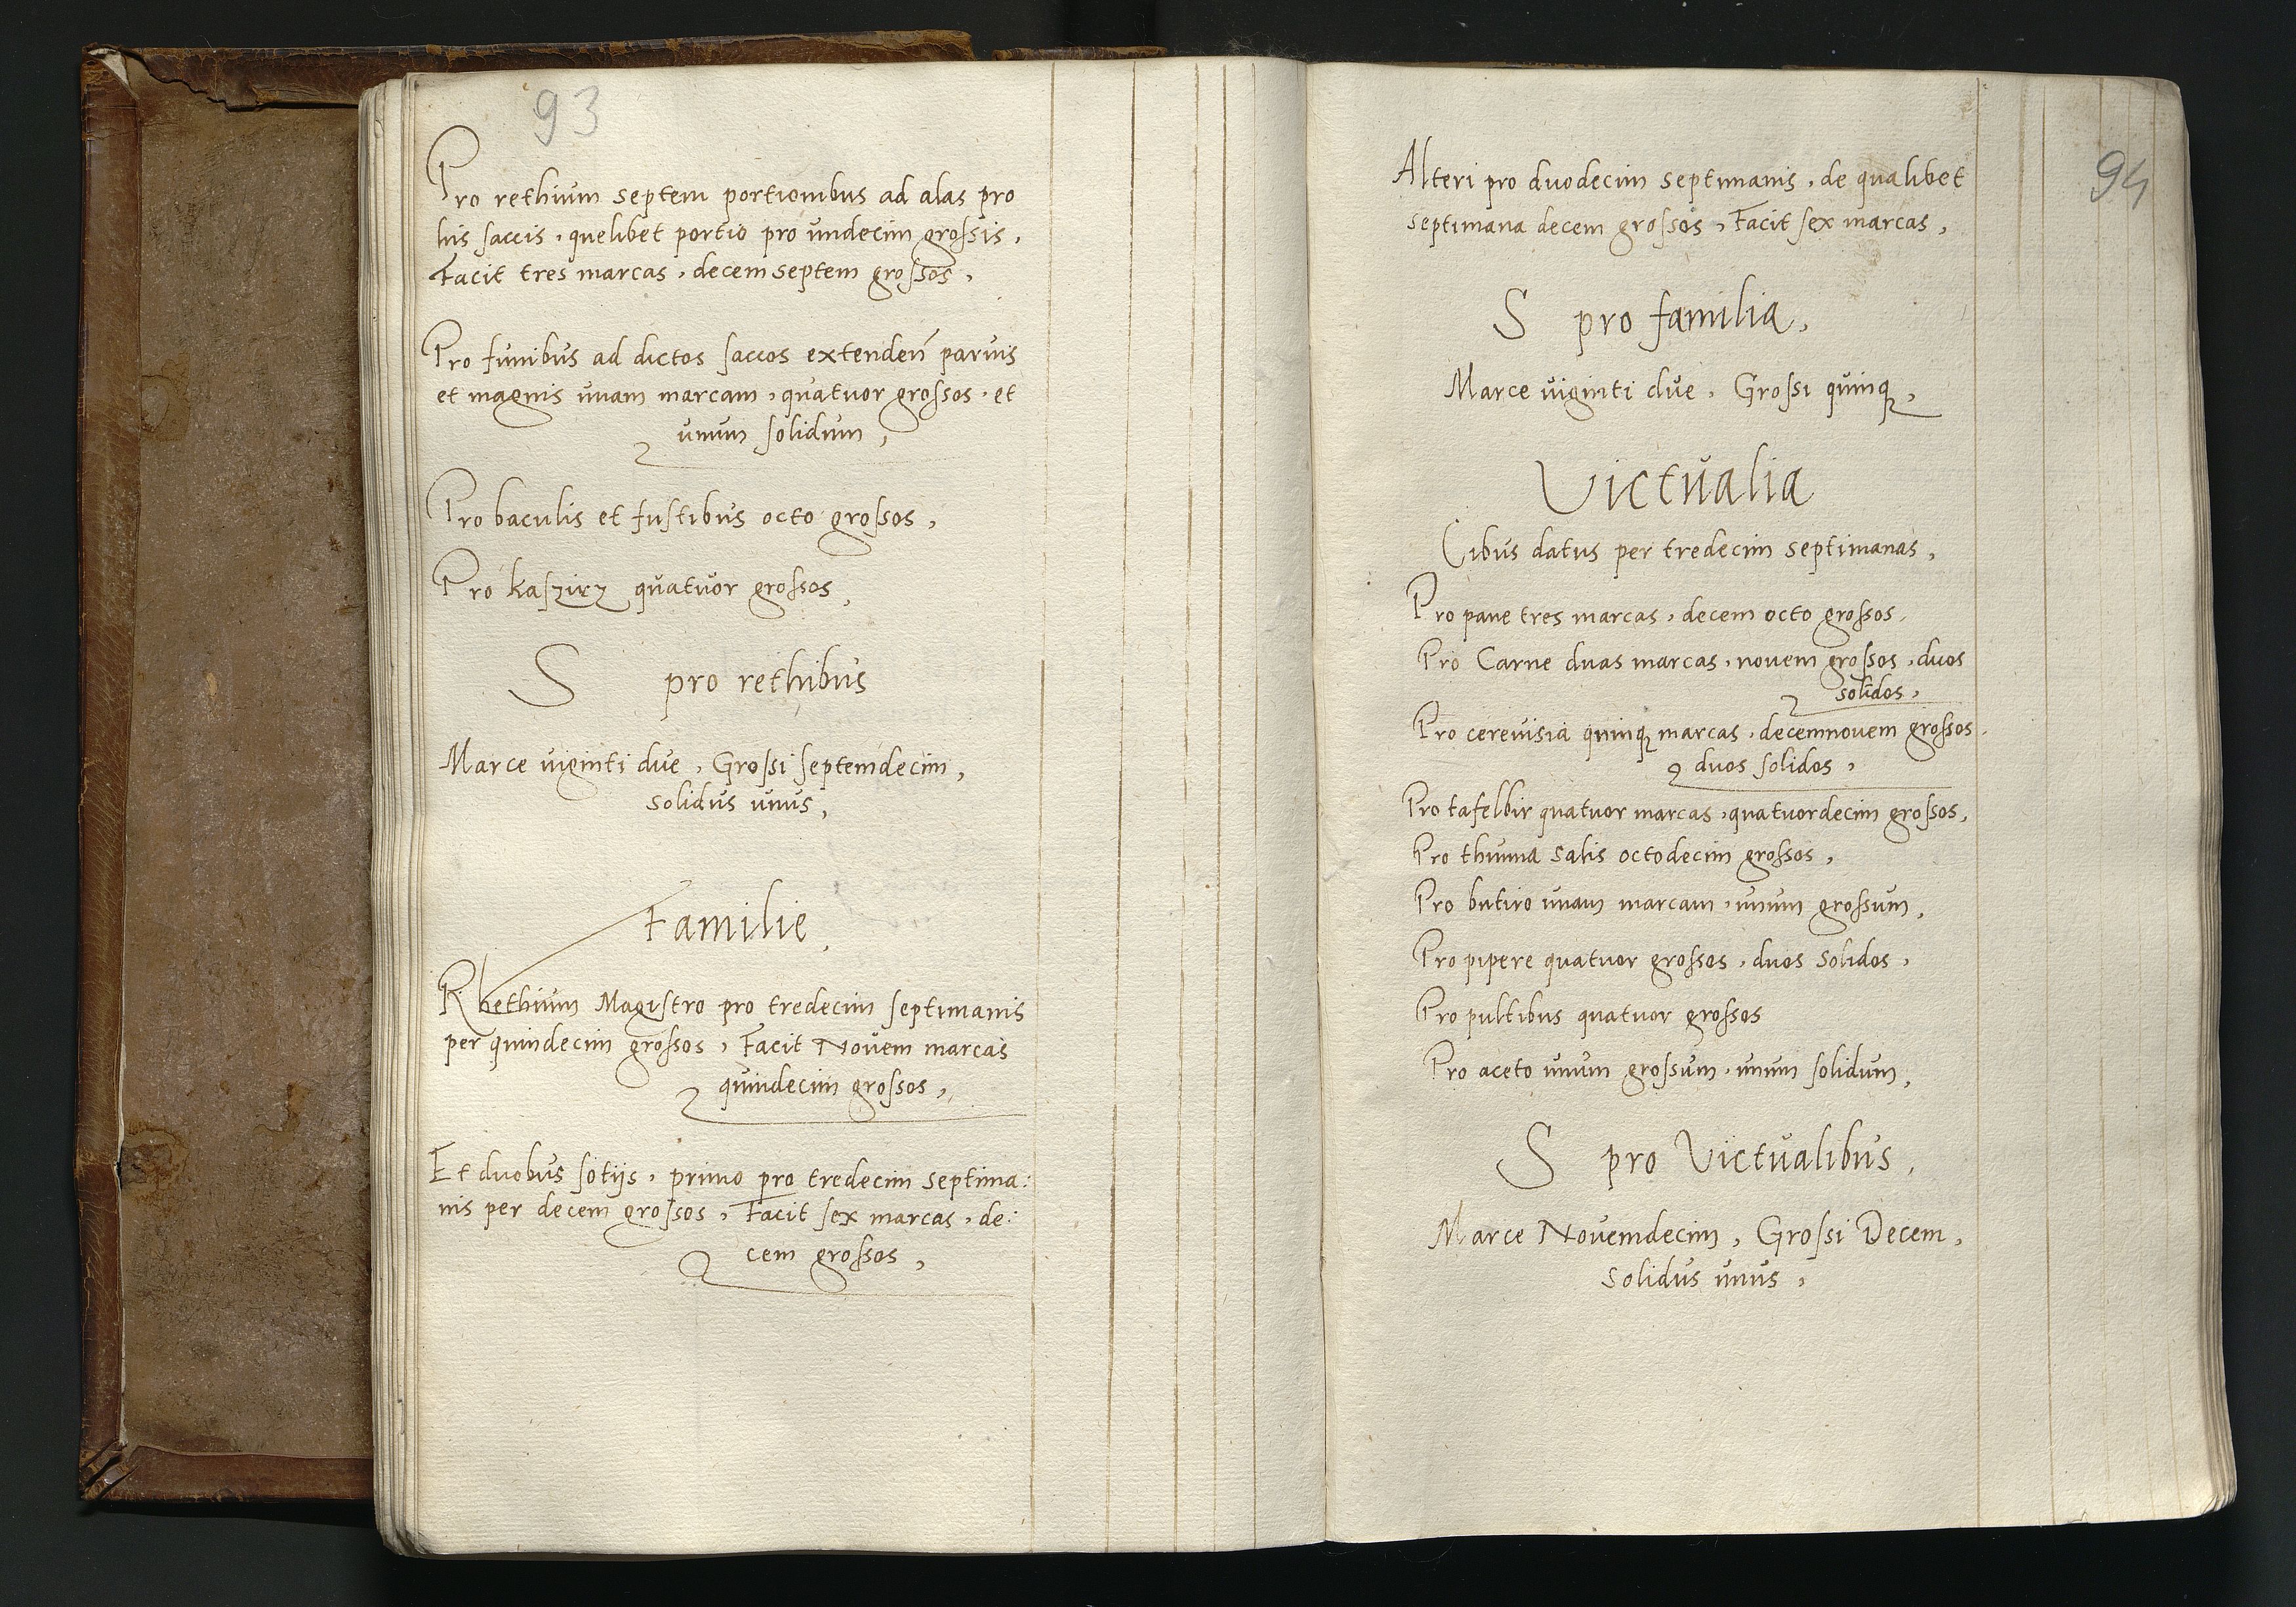 93
Pro rethium septem portionibus ad alas pro
his saccis, quelibet portio pro undecim grossis,
Facit tres marcas, decem septem grossos,
Pro funibus ad dictos saccos extendeń paruis
et magnis unam marcam, quatuor grossos, et
unum solidum,
Pro baculis et fustibus octo grossos,
Pro kaszirz quatuor grossos,
S pro rethibus
Marce uiginti due, Grossi septemdecim,
solidus unus,
Familie,
Rhethium Magistro pro tredecim septimanis
per quindecim grossos, Facit Novem marcas
quindecim grossos,
Et duobus sotijs, primo pro tredecim septima:
nis per decem grossos, Facit sex marcas, de:
cem grossos,
94
Alteri pro duodecim septimanis, de qualibet
septimana decem grossos, Facit sex marcas,
S pro familia,
Marce uiginti due, Grossi quinq,
Victualia
Cibus datus per tredecim septimanas,
Pro pane tres marcas, decem octo grossos,
Pro Carne duas marcas, nouem grossos, duos
solidos,
Pro cereuisia quinq marcas, decemnouem grossos,
duos solidos,
Pro tafelbir quatuor marcas, quatuordecim grossos,
Pro thunna salis octodecim grossos,
Pro butiro unam marcam, unum grossum,
Pro pipere quatuor grossos, duos solidos,
Pro pultibus quatuor grossos
Pro aceto unum grossum, unum solidum,
S pro Victualibus,
Marce Novemdecim, Grossi Decem,
solidus unus,